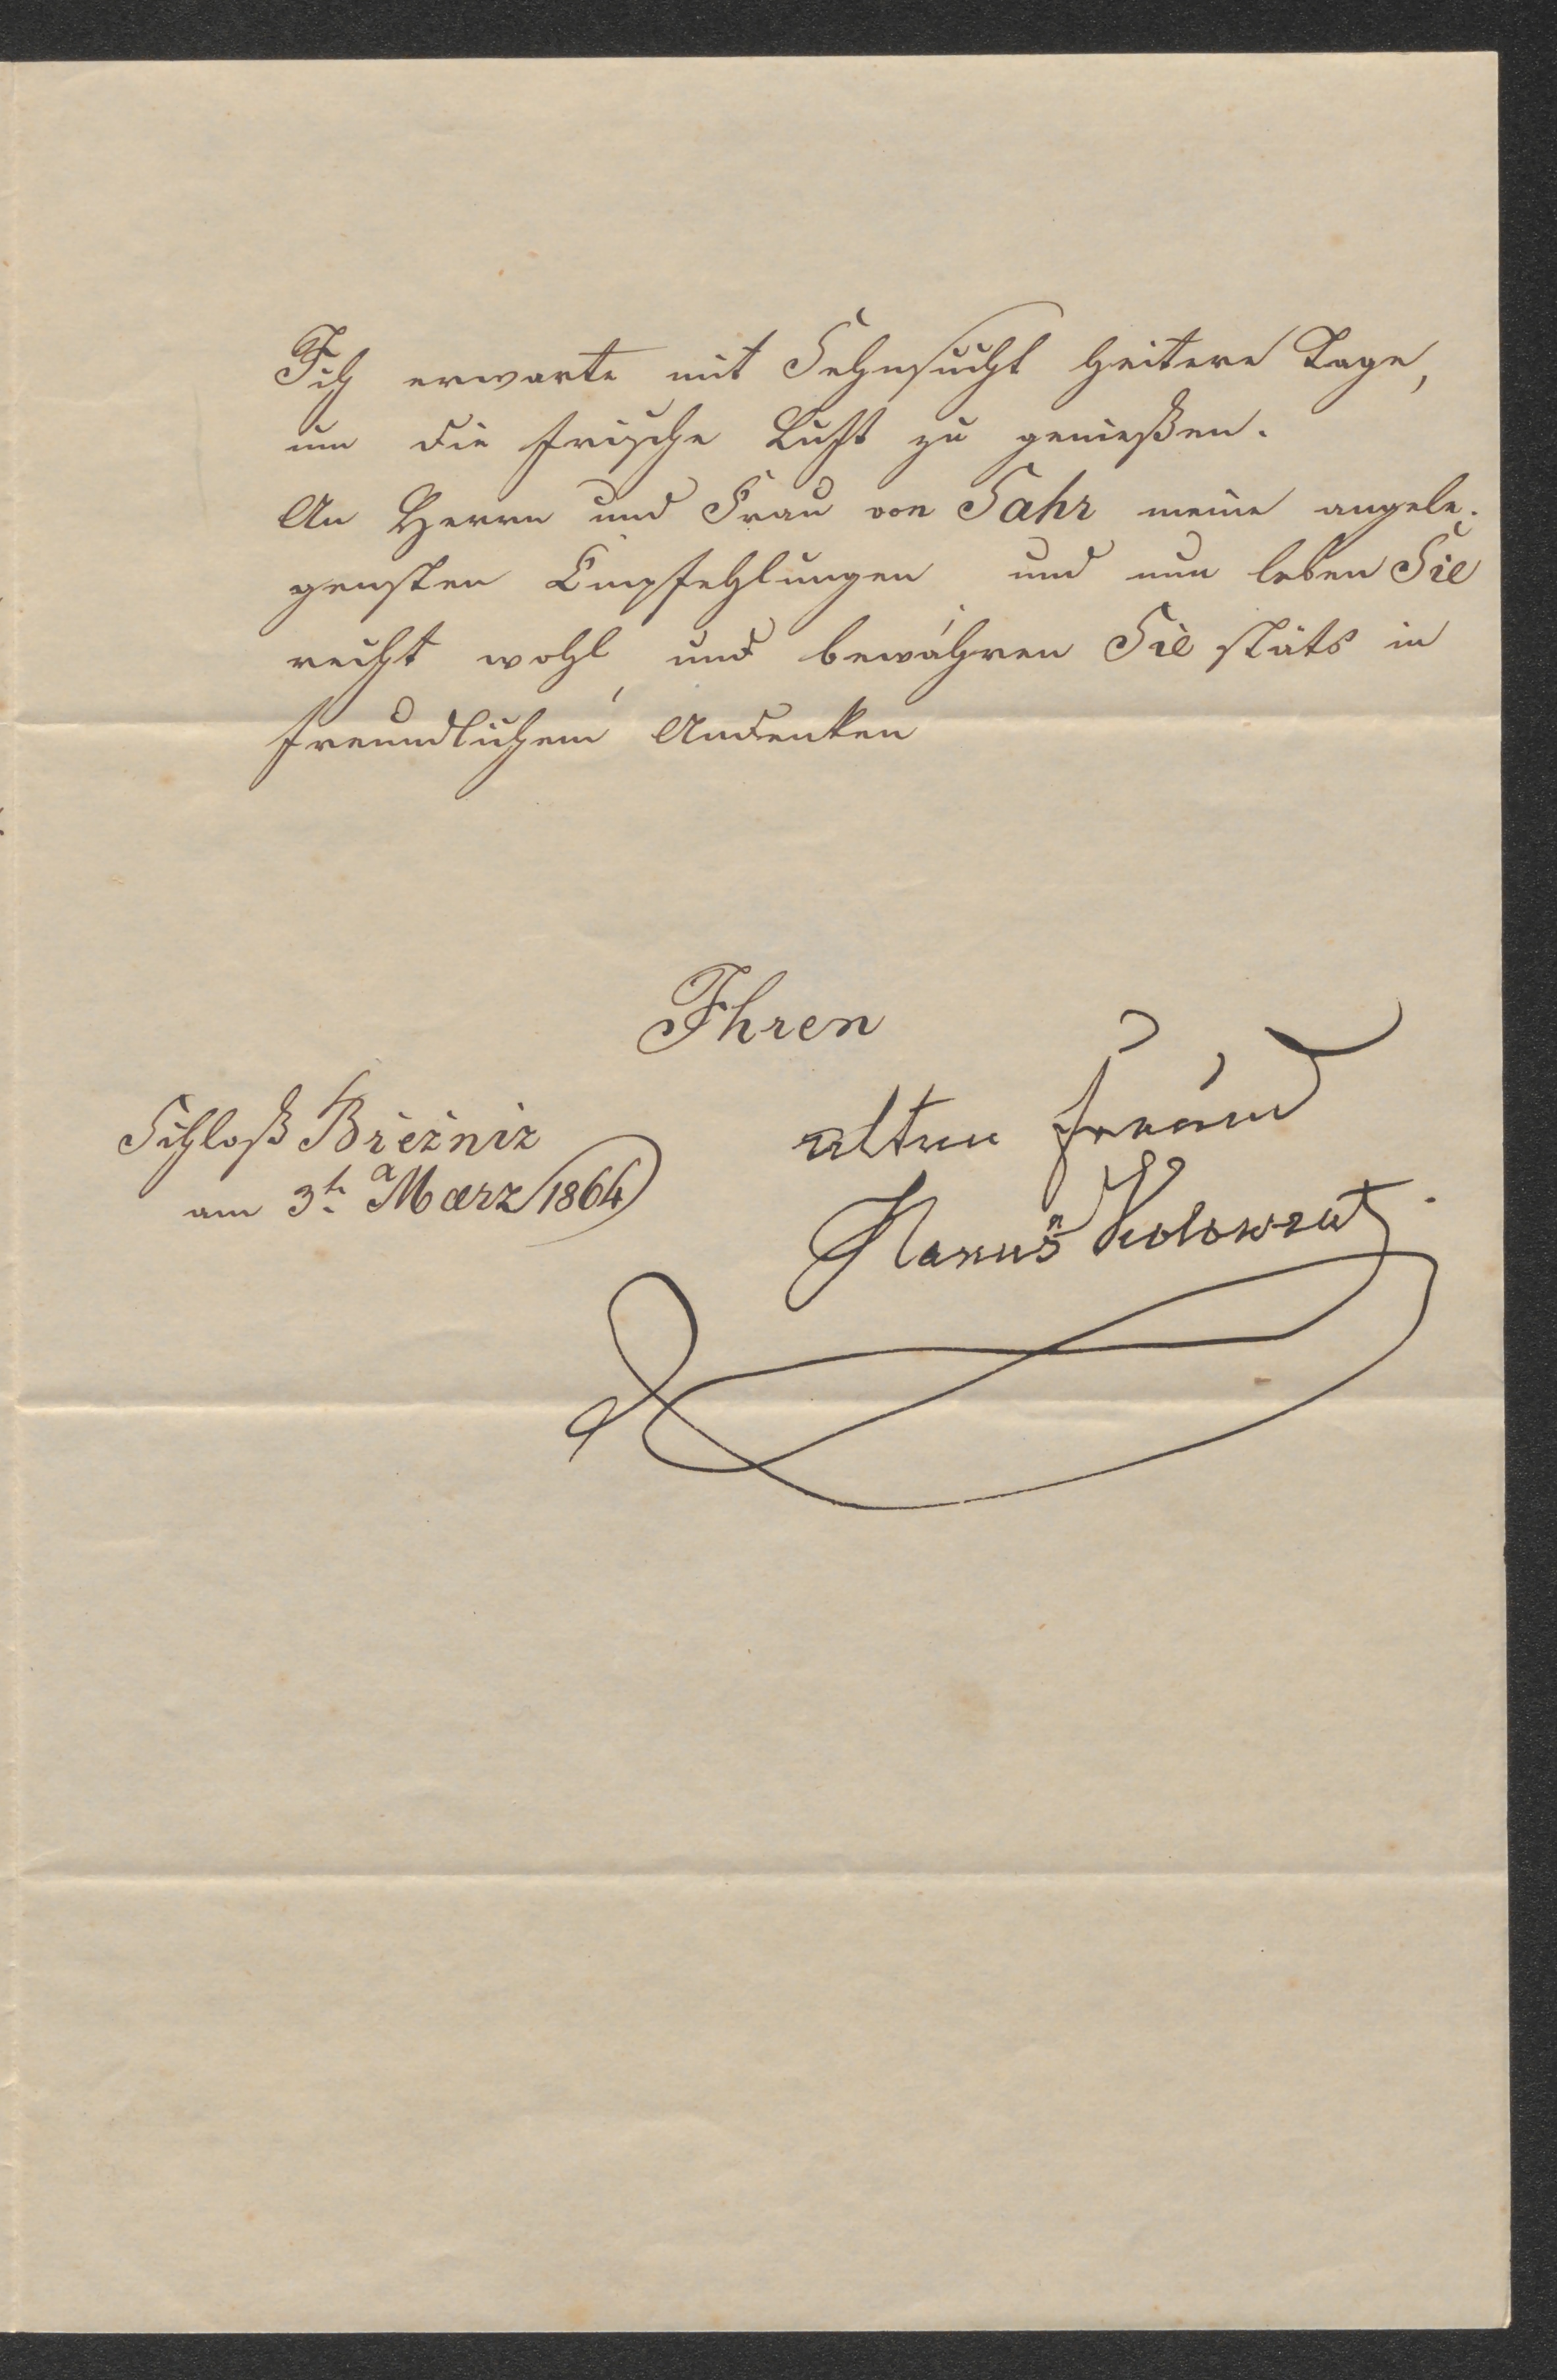 Ich erwarte mit Sehnsucht heitere Tage,
um die frische Luft zu genießen.
An Herrn und Frau von Sahr meine angele-
gensten Empfehlungen und nun leben Sie
recht wohl, und bewahren Sie stäts in
freundlichem Andenken
Ihren
alten Freund
Hanuš Kolowrat
Schloß Březniz
am 3t. Maerz 1864